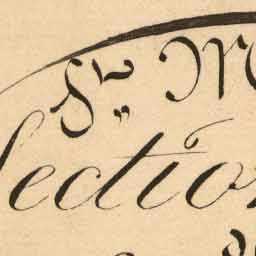 Sr. M
Section